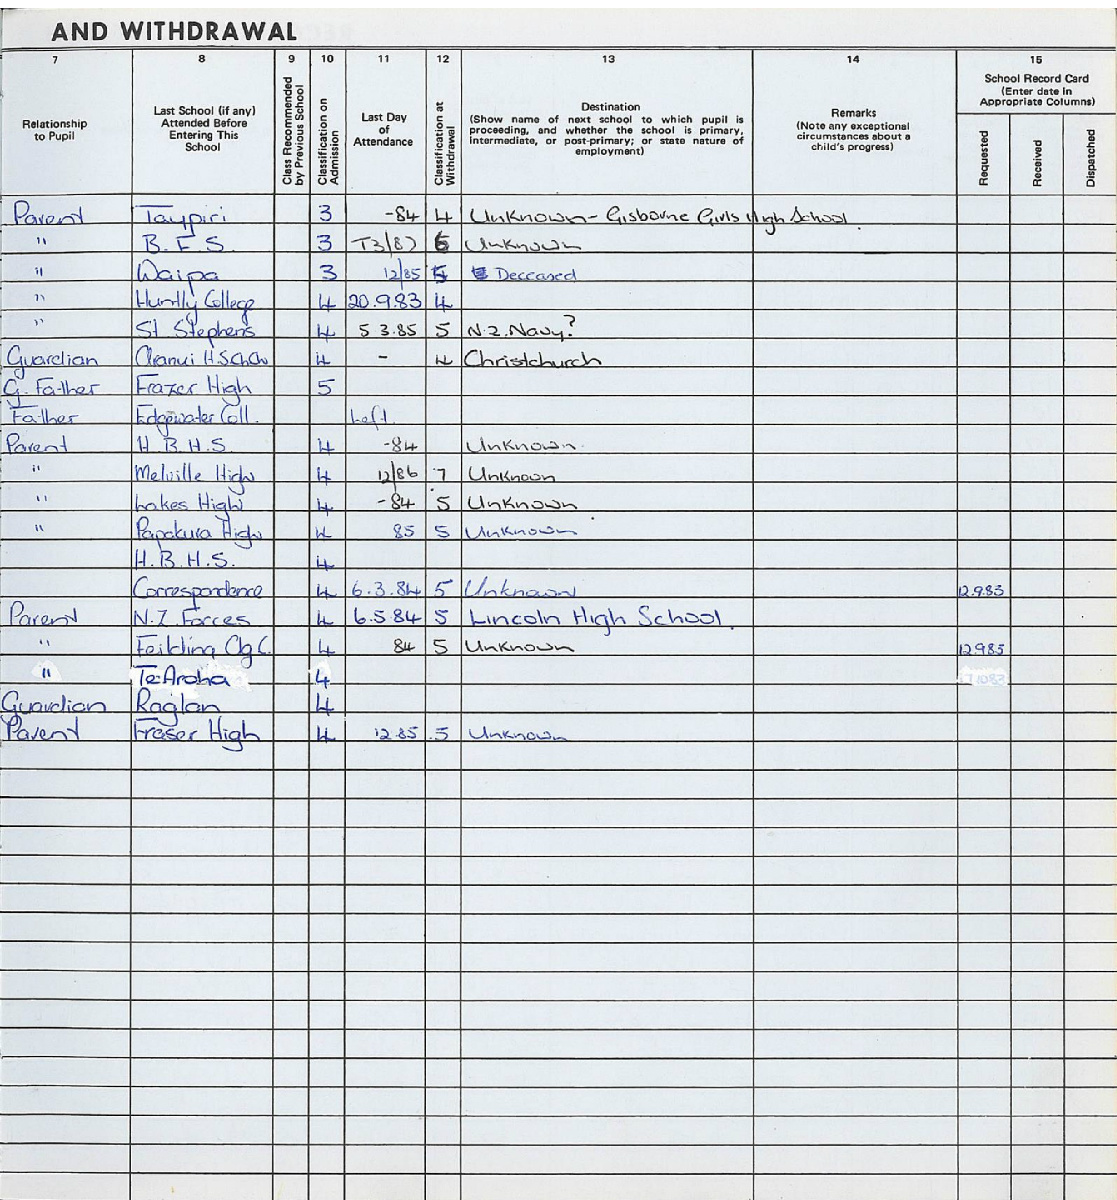 AND WITHDRAWAL
7 8 9 10 11 12 13 14 15
Relationship to Pupil
Last School (if any) Attended Before Entering This School
Class Recommended by Previous School
Classification on Admission
Last Day of Attendance
Classification at Withdrawal
Destination
(Show name of next school to which pupil is proceeding, and whether the school is primary, intermediate, or post-primary; or state nature of employment)
Remarks
(Note any exceptional circumstances about a child's progress)
School Record Card
(Enter date in Appropriate Columns)
Requested
Received
Dispatched
Parent Taupiri 3 -84 4 Unknown - Gisborne Girls High School
" B.F.S. 3 Unknown
" Waipa 3 12/85 5 Deceased
" Huntly College 4 20.9.83 4
" St Stephens 4 5 3.85 5 N.Z. Navy?
Guardian 4 - 4 Christchurch
G. Father Frazer High 5
Father Edgewater Coll. Left.
Parent H.B.H.S. 4 -84 Unknown
" Melville High 4 12/86 7 Unknown
" Lakes High 4 -84 5 Unknown
" Papakura High 4 85 5 Unknown
H.B.H.S. 4
Correspondence 4 6.3.84 5 Unknown 12.9.83
Parent N.Z Forces 4 6.5.84 5 Lincoln High School.
" Feilding 4 84 5 Unknown 12.985
" Te Aroha 4
Guardian Raglan 4
Parent Fraser High 4 12.85 5 Unknown